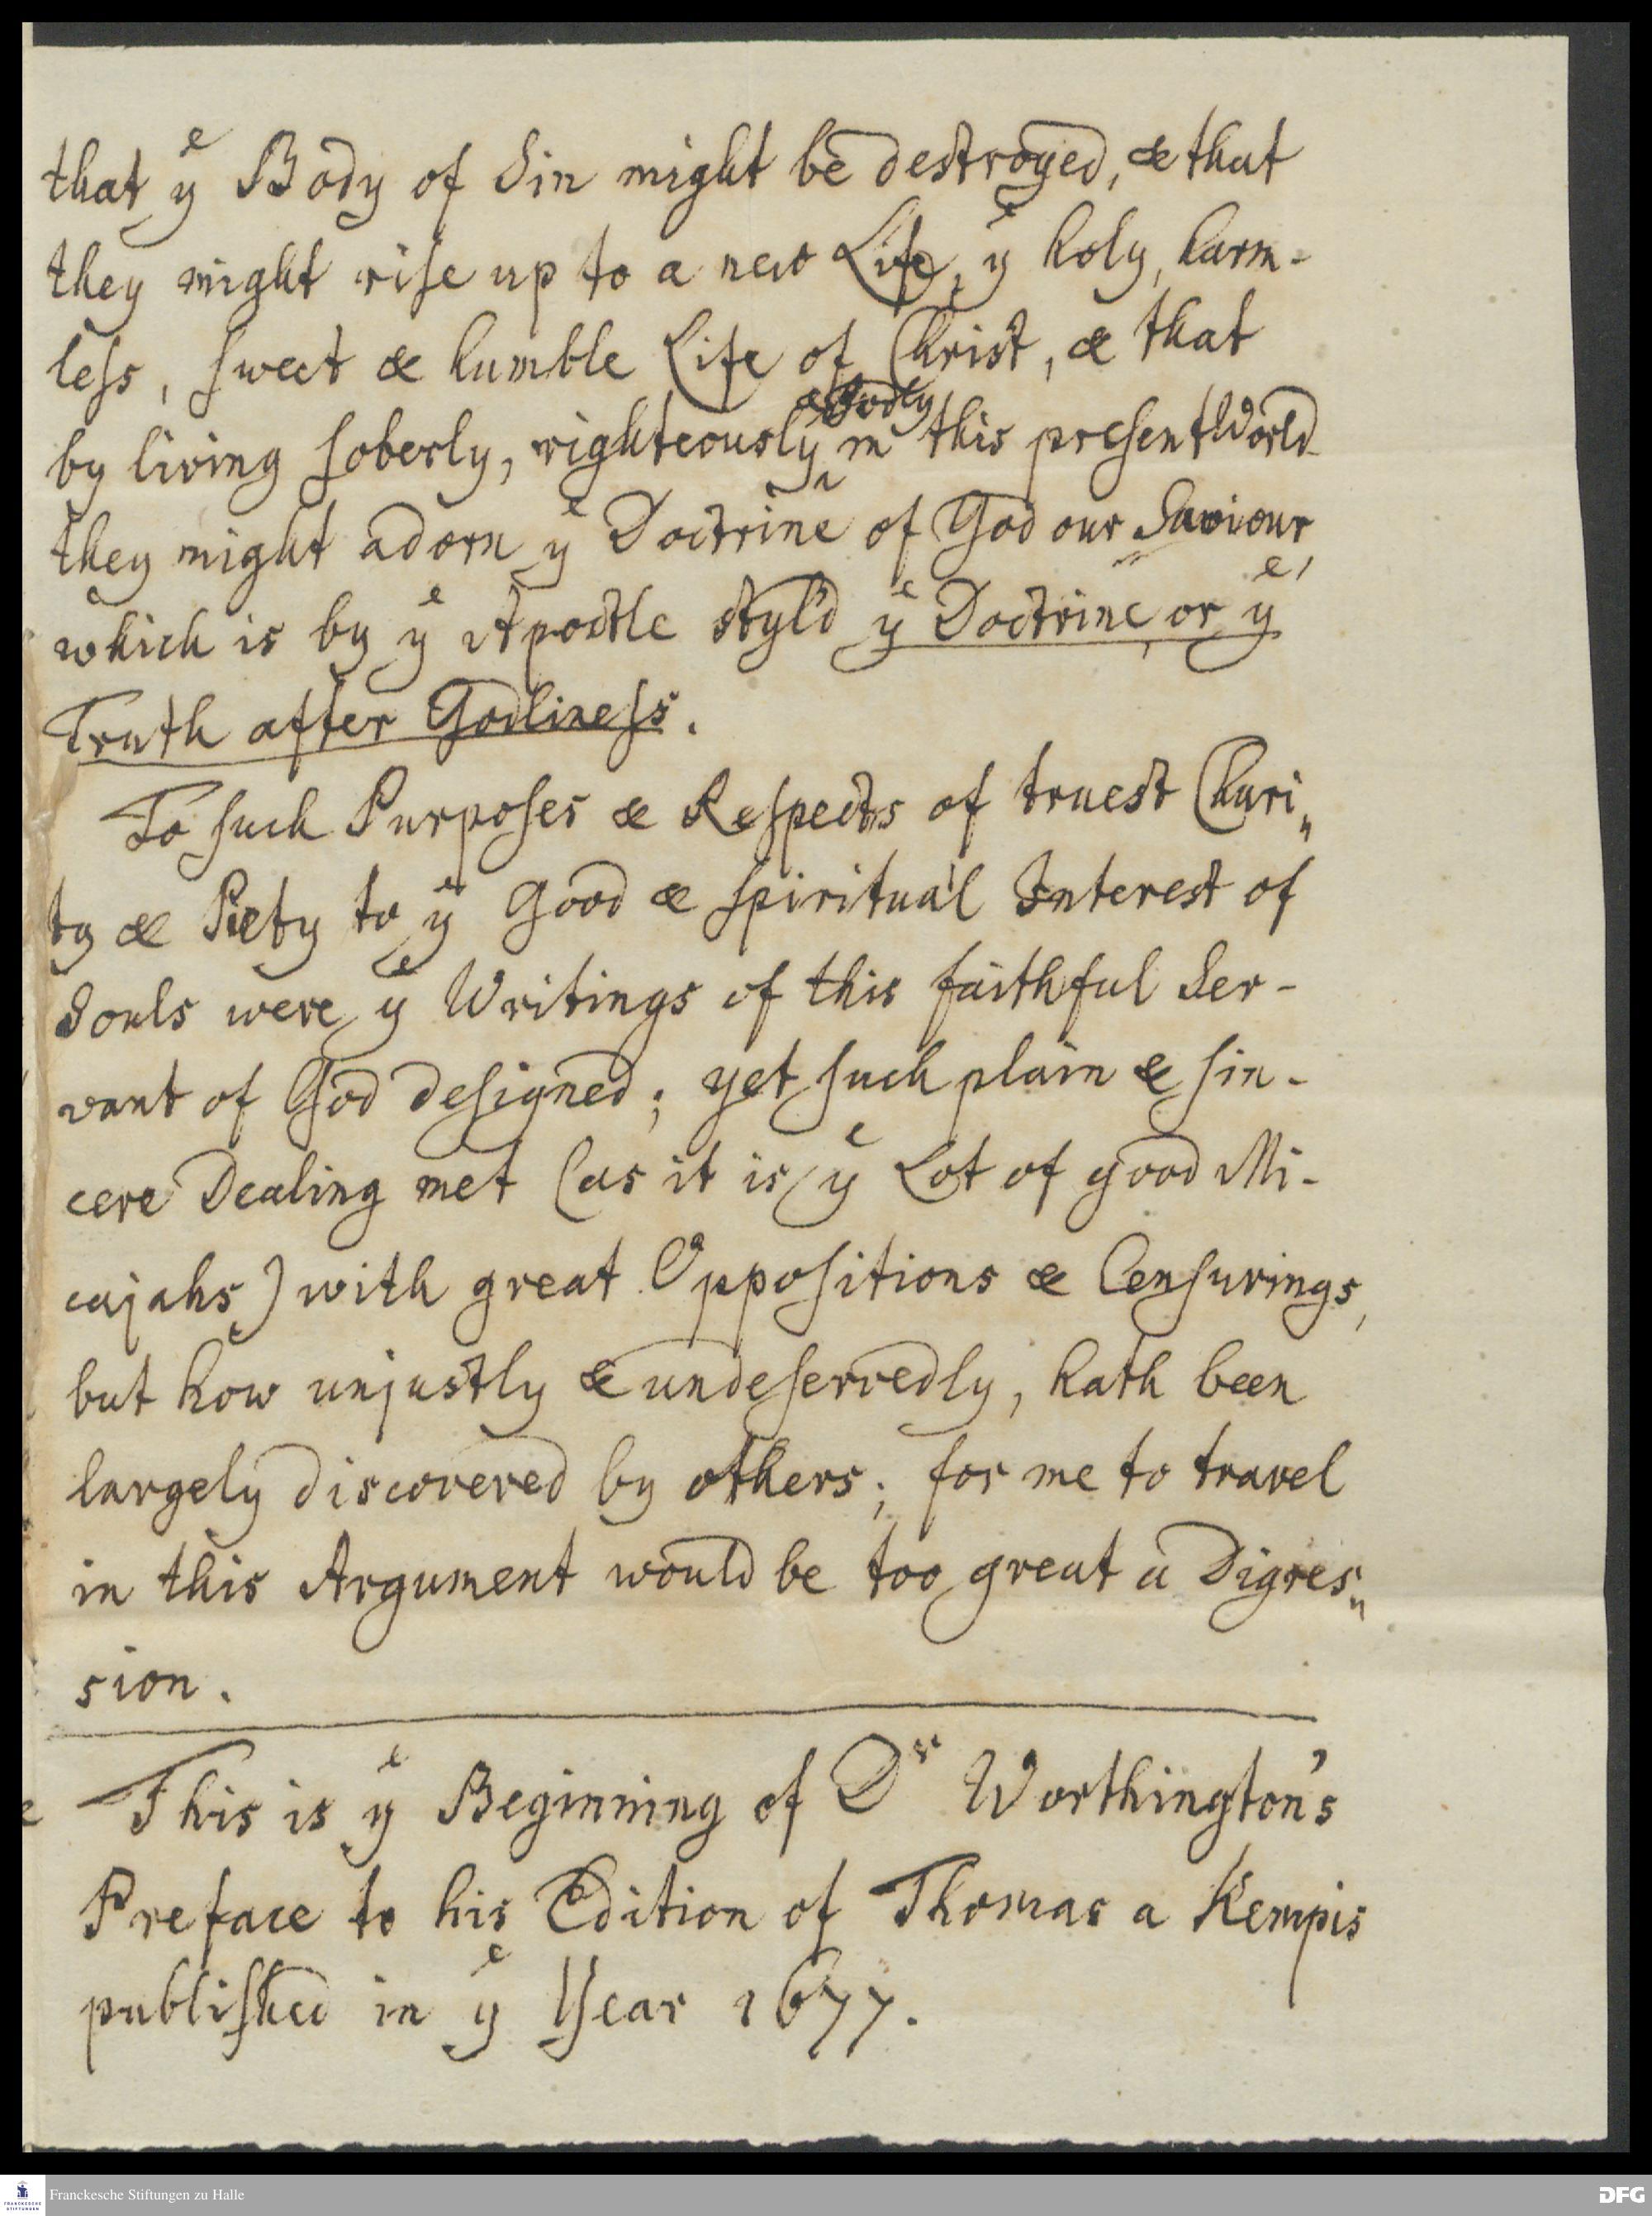 that yͤ Body of Sin might be destroyed, & that
they might rise up to a new Life, yͤ holy, harm-
less, sweet & humble Life of Christ, & that
& Godly
by living soberly, righteously ‸ in this present World
they might adorn yͤ Doctrine of God our Saviour,
which is by yͤ Apostle styl'd yͤ Doctrine, or yͤ
Truth after Godliness.
To such Purposes & Respects of truest Chari„
ty & Piety to yͤ Good & spiritual Interest of
Souls were yͤ Writings of this faithful Ser-
vant of God designed; yet such plain & sin-
cere Dealing met (as it is yͤ Lot of good Mi-
cajahs) with great Oppositions & Censurings,
but how unjustly & undeservedly, hath been
largely discovered by others; for me to travel
in this Argument would be too great a Digres„
sion.
This is yͤ Beginning of Dʳ Worthington's
Preface to his Edition of Thomas a Kempis
published in yͤ Year 1677.
Franckesche Stiftungen zu Halle
DFG